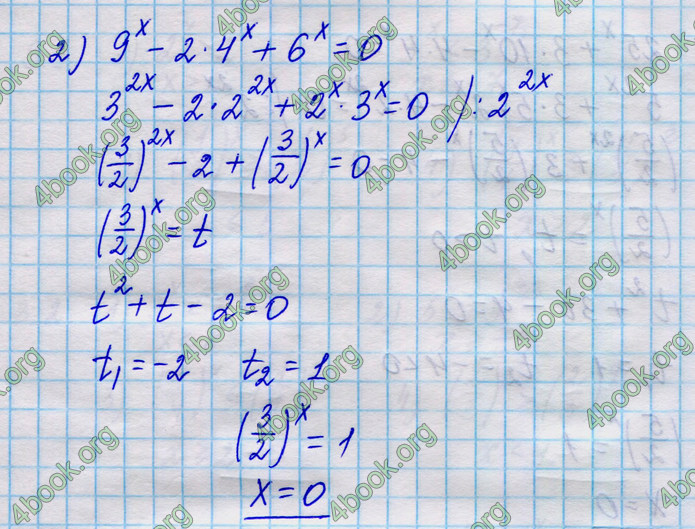 2) 9^x - 2·4^x + 6^x = 0
3^2x - 2·2^2x + 2^x·3^x = 0 ) : 2^2x
(3/2)^2x - 2 + (3/2)^x = 0
(3/2)^x = t
t^2 + t - 2 = 0
t₁ = -2 t₂ = 1
(3/2)^x = 1
x = 0
4book.org